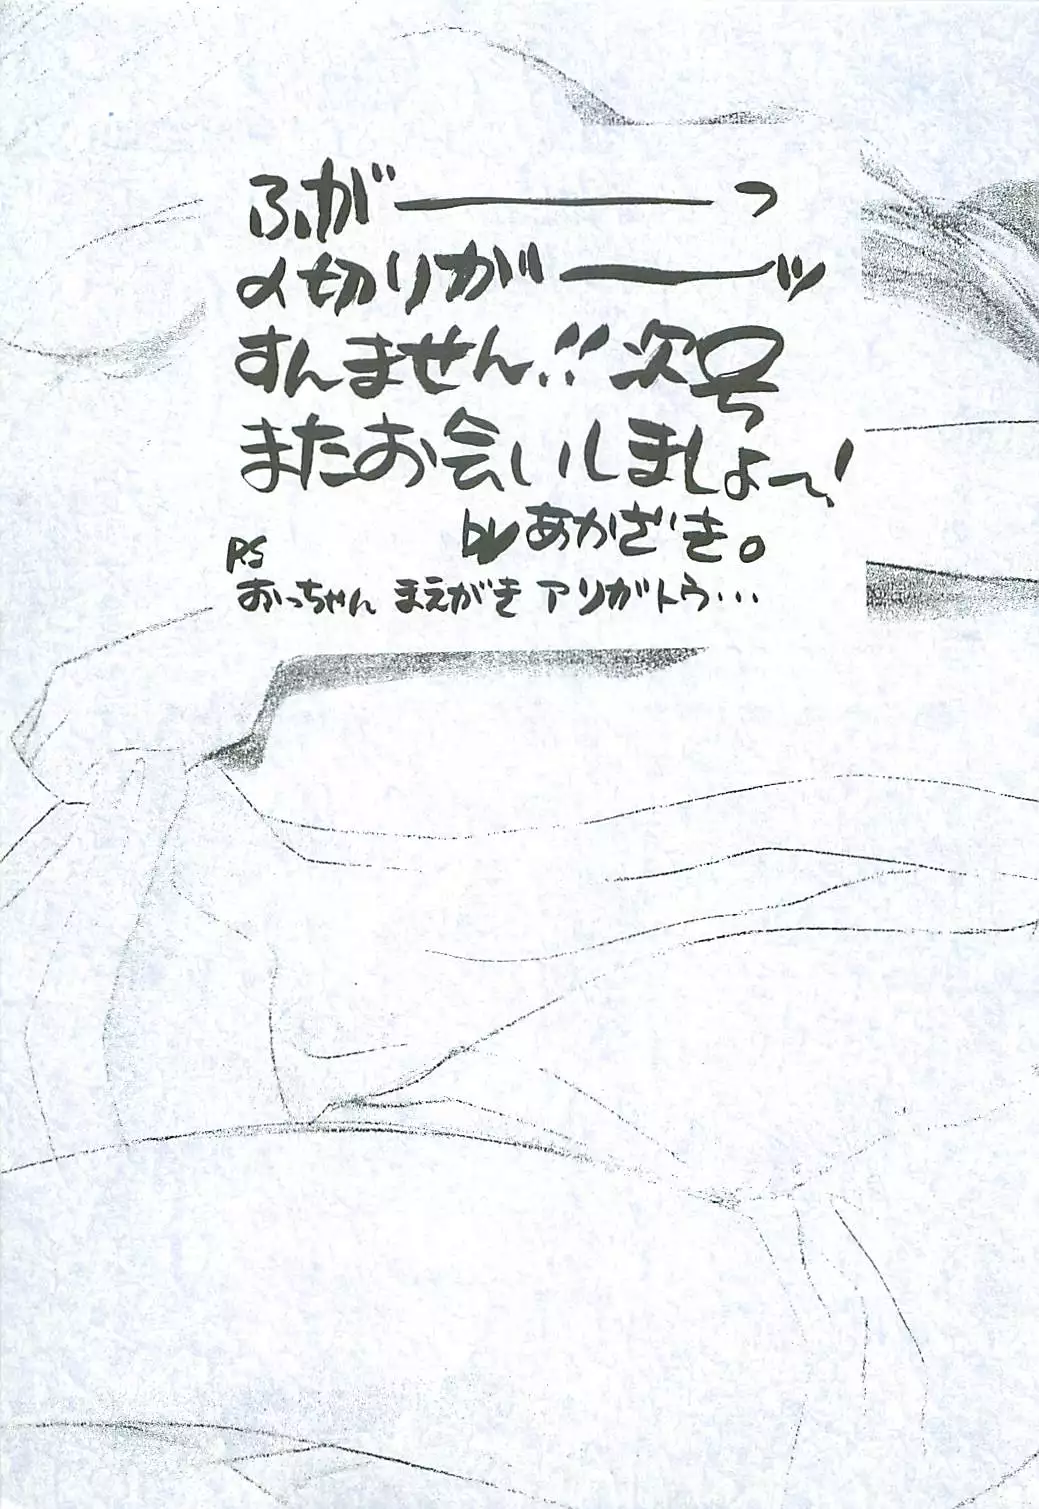 ふがーーーっ
〆切りがーーッ
すんません!!次号
またお会いしましょー!
by あかざき。
PS
おっちゃん まえがき アリガトウ・・・